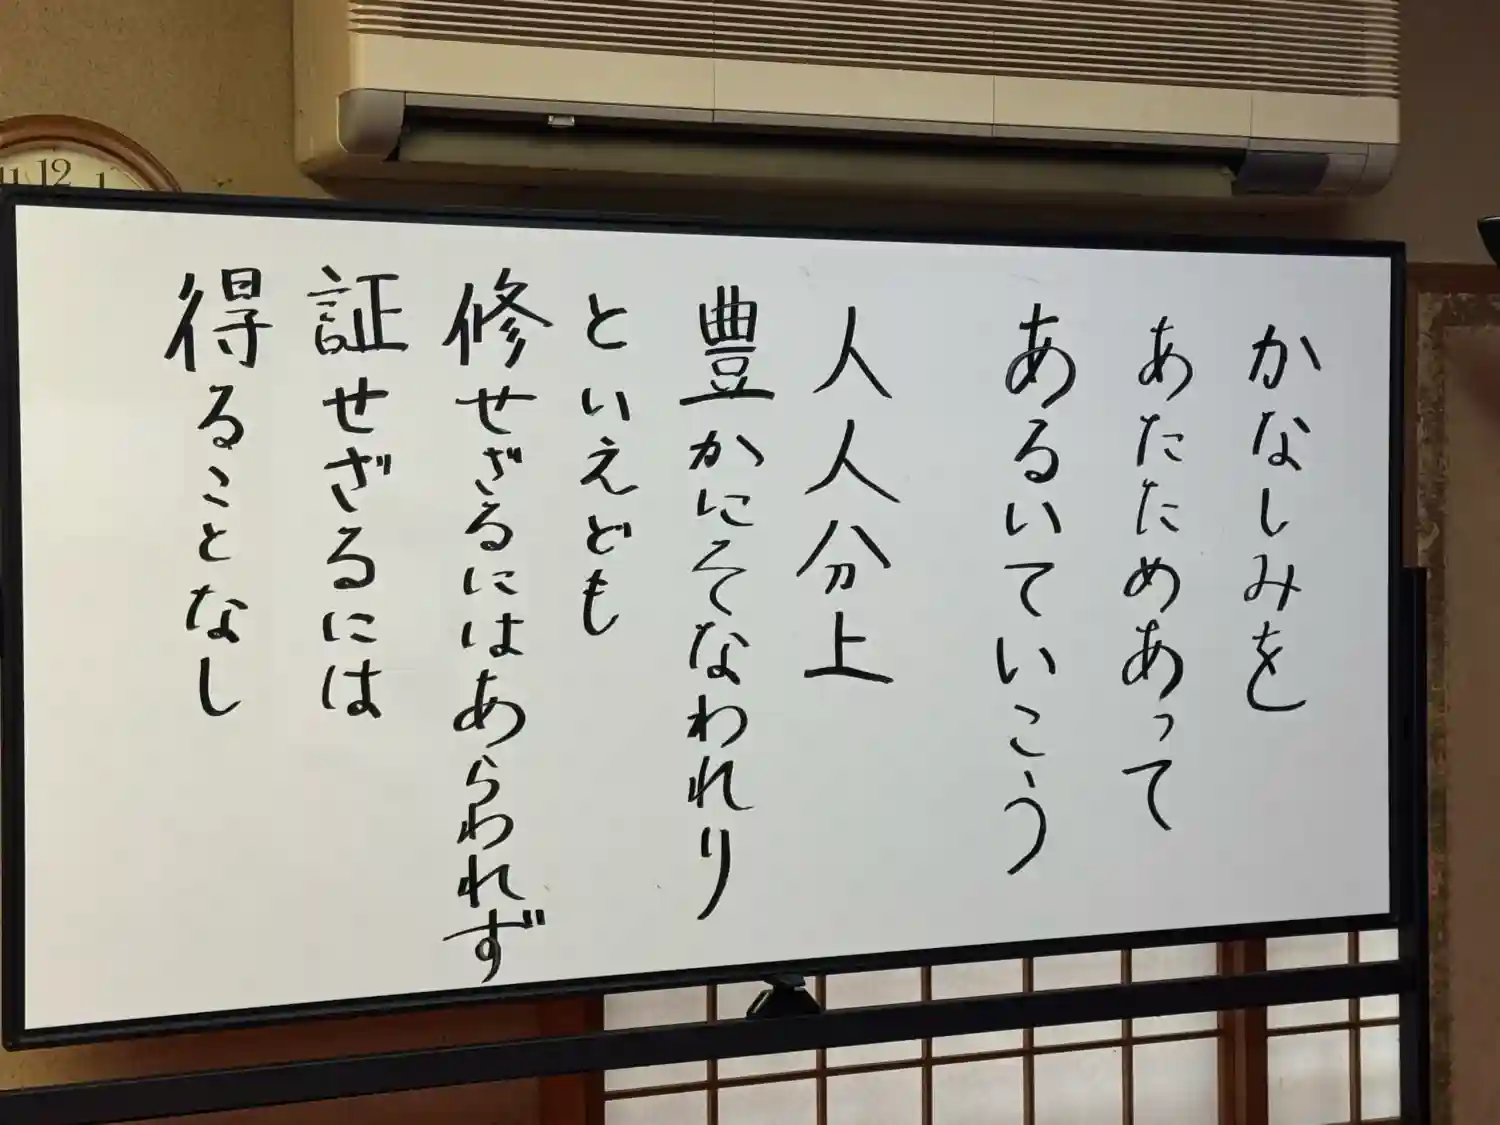 かなしみを
あたためあって
あるいていこう
人人分上
豊かにそなわれり
といえども
修せざるにはあらわれず
証せざるには
得ることなし
11 12 1